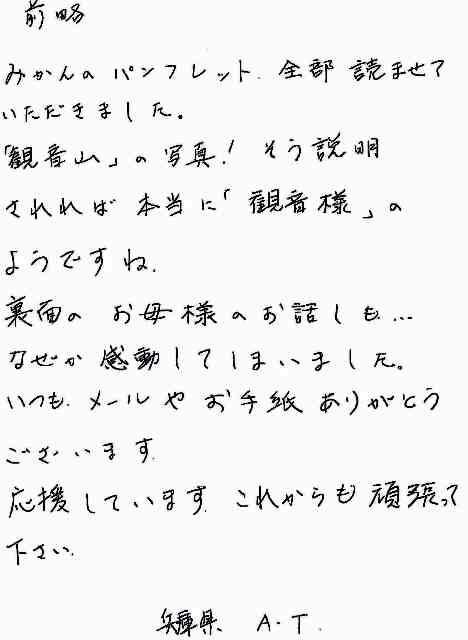 前略
みかんのパンフレット、全部読ませて
いただきました。
「観音山」の写真! そう説明
されれば本当に「観音様」の
ようですね。
裏面のお母様のお話しも…
なぜか感動してしまいました。
いつも、メールやお手紙ありがとう
ございます。
応援しています。これからも頑張って
下さい。
兵庫県 A.T.